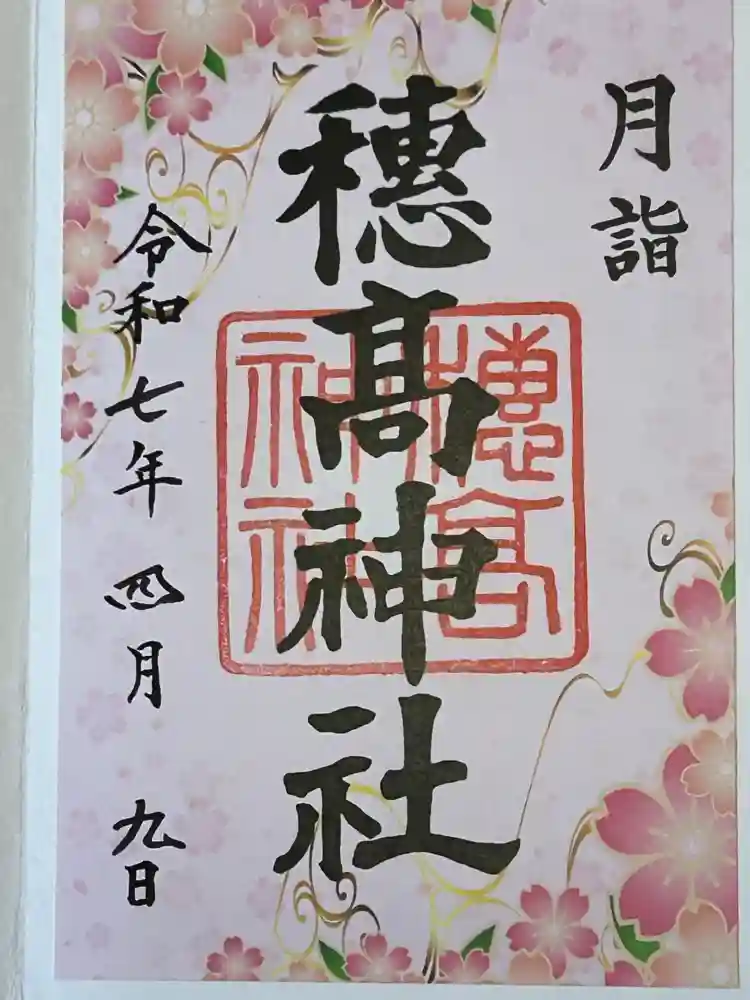 月詣
穂髙神社
穂高
神社
令和七年 四月 九日